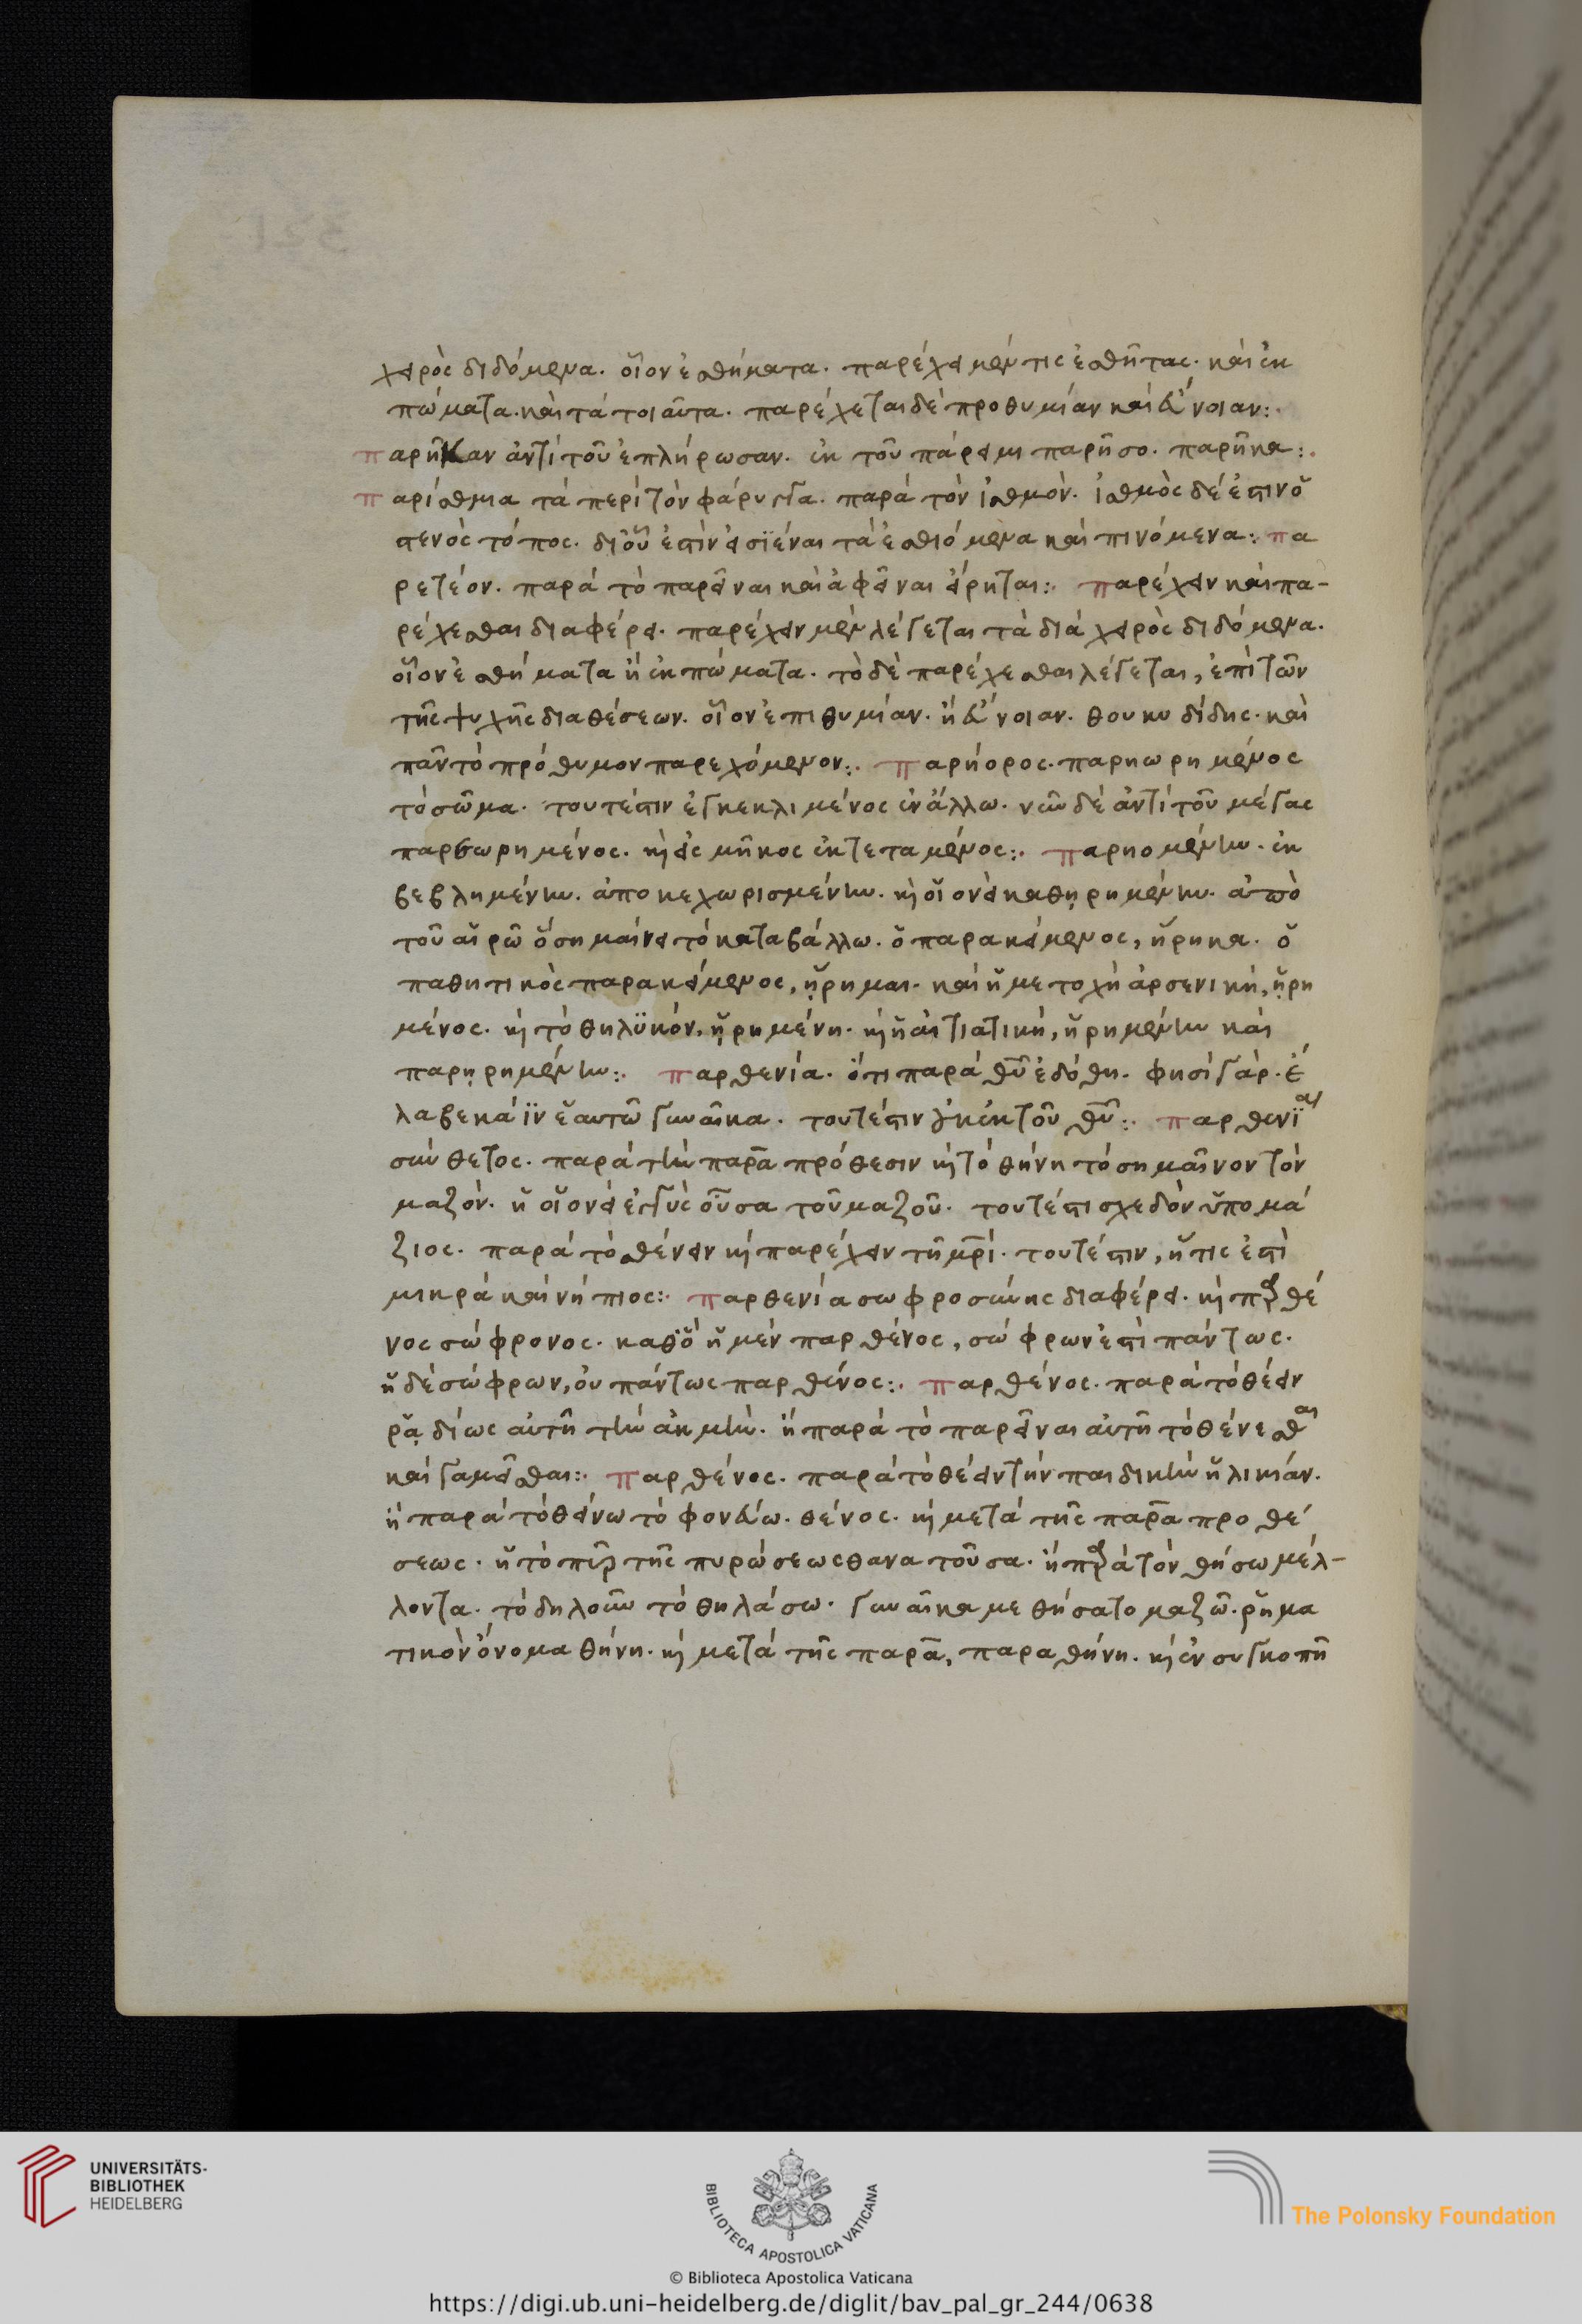 χειρὸς διδόμενα. οἷον ἐσθήματα. παρέχει μέν τις ἐσθῆτας. καὶ ἐκ
πώματα. καὶ τὰ τοιαῦτα. παρέχεται δὲ προθυμίαν καὶ εὔνοιαν:.
παρῆκαν ἀντὶ τοῦ ἐπλήρωσαν. ἐκ τοῦ πάρειμι παρήσο. παρῆκα:.
παρίσθμια τὰ περὶ τὸν φάρυγγα. παρὰ τὸν ἰσθμόν. ἰσθμὸς δέ ἐστιν ὁ
στενὸς τόπος. δι' οὗ ἐστὶν εἰσϊέναι τὰ ἐσθιόμενα καὶ πινόμενα:. πα
ρετέον. παρὰ τὸ παρεῖναι καὶ ἀφεῖναι εἴρηται:. παρέχειν καὶ πα-
ρέχεσθαι διαφέρει. παρέχειν μὲν λέγεται τὰ διὰ χειρὸς διδόμενα.
οἷον ἐσθήματα ἢ ἐκπώματα. τὸ δὲ παρέχεσθαι λέγεται, ἐπὶ τῶν
τῆς ψυχῆς διαθέσεων. οἷον ἐπιθυμίαν. ἢ εὔνοιαν. θουκυδίδης. καὶ
πᾶν τὸ πρόθυμον παρεχόμενον:. παρήορος. παρηωρημένος
τὸ σῶμα. τουτέστιν ἐγκεκλιμένος ἐν ἄλλω. νῦν δὲ ἀντὶ τοῦ μέγας
παρεωρημένος. κὶ εἰς μῆκος ἐκτεταμένος:. παρηομένην. ἐκ
βεβλημένην. ἀποκεχωρισμένην. κὶ οἱονεὶ καθῃρημένην. ἀπὸ
τοῦ αἱρῶ ὃ σημαίνει τὸ καταβάλλω. ὁ παρακείμενος, ἥρηκα. ὁ
παθητικὸς παρακείμενος, ᾕρημαι. καὶ ἡ μετοχὴ ἀρσενική, ᾑρη
μένος. κὶ τὸ θηλϋκόν, ᾑρημένη. κὶ ἡ αἰτιατική, ἡρημένην καὶ
παρῃρημένην:. παρθενία. ὅτι παρὰ θῦ ἐδόθη. φησὶ γάρ. ἔ
λαβε κάϊν ἑαυτῶ γυναῖκα. τουτέστιν οὐκ ἐκ τοῦ θῦ:. παρθενϊαι
σύνθετος. παρὰ τὴν παρὰ πρόθεσιν κὶ τὸ θήνη τὸ σημαῖνον τὸν
μαζόν. ἡ οἱονεὶ ἐγγὺς οὖσα τοῦ μαζοῦ. τουτέστι σχεδὸν ὑπομά
ζιος. παρὰ τὸ θένειν κὶ παρέχειν τῆ μρί. τουτέστιν, ἥτις ἐστὶ
μικρὰ καὶ νήπιος:. παρθενία σωφροσύνης διαφέρει. κὶ παρθέ
νος σώφρονος. καθὃ ἡ μὲν παρθένος, σώφρων ἐστὶ πάντως.
ἡ δὲ σώφρων, οὐ πάντως παρθένος:. παρθένος. παρὰ τὸ θέειν
ῥᾳδίως αὐτῆ τὴν ἀκμὴν. ἢ παρὰ τὸ παρεῖναι αὐτῆ τὸ θένεσθαι
καὶ γαμεῖσθαι:. παρθένος. παρὰ τὸ θέειν τὴν παιδικὴν ἡλικίαν.
ἢ παρὰ τὸ θείνω τὸ φονεύω. θένος. κὶ μετὰ τῆς παρὰ προθέ
σεως. ἡ τὸ πῦρ τῆς πυρώσεως θανατοῦσα. ἢ παρὰ τὸν θήσω μέλ-
λοντα. τὸ δηλοῦν τὸ θηλάσω. γυναῖκα με θήσατο μαζῶ. ῥημα
τικὸν ὄνομα θήνη. κὶ μετὰ τῆς παρὰ, παραθήνη. κὶ ἐν συγκοπῆ
UNIVERSITÄTS-
BIBLIOTHEK
HEIDELBERG
BIBLIOTECA APOSTOLICA VATICANA
The Polonsky Foundation
© Biblioteca Apostolica Vaticana
https://digi.ub.uni-heidelberg.de/diglit/bav_pal_gr_244/0638